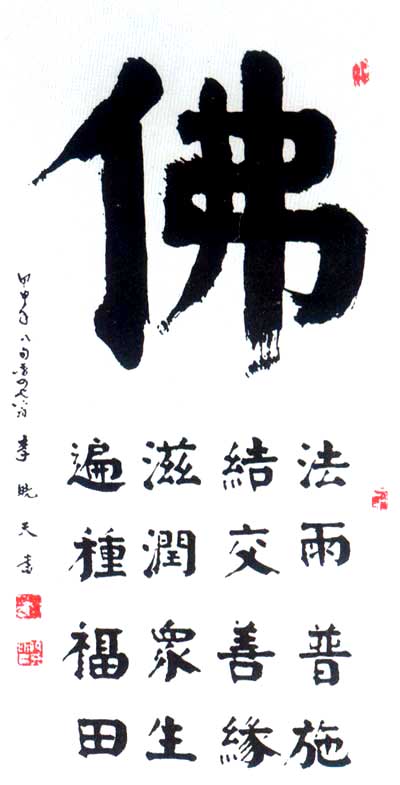 佛
法雨普施
結交善緣
滋潤眾生
遍種福田
甲申年八旬
李晓天書